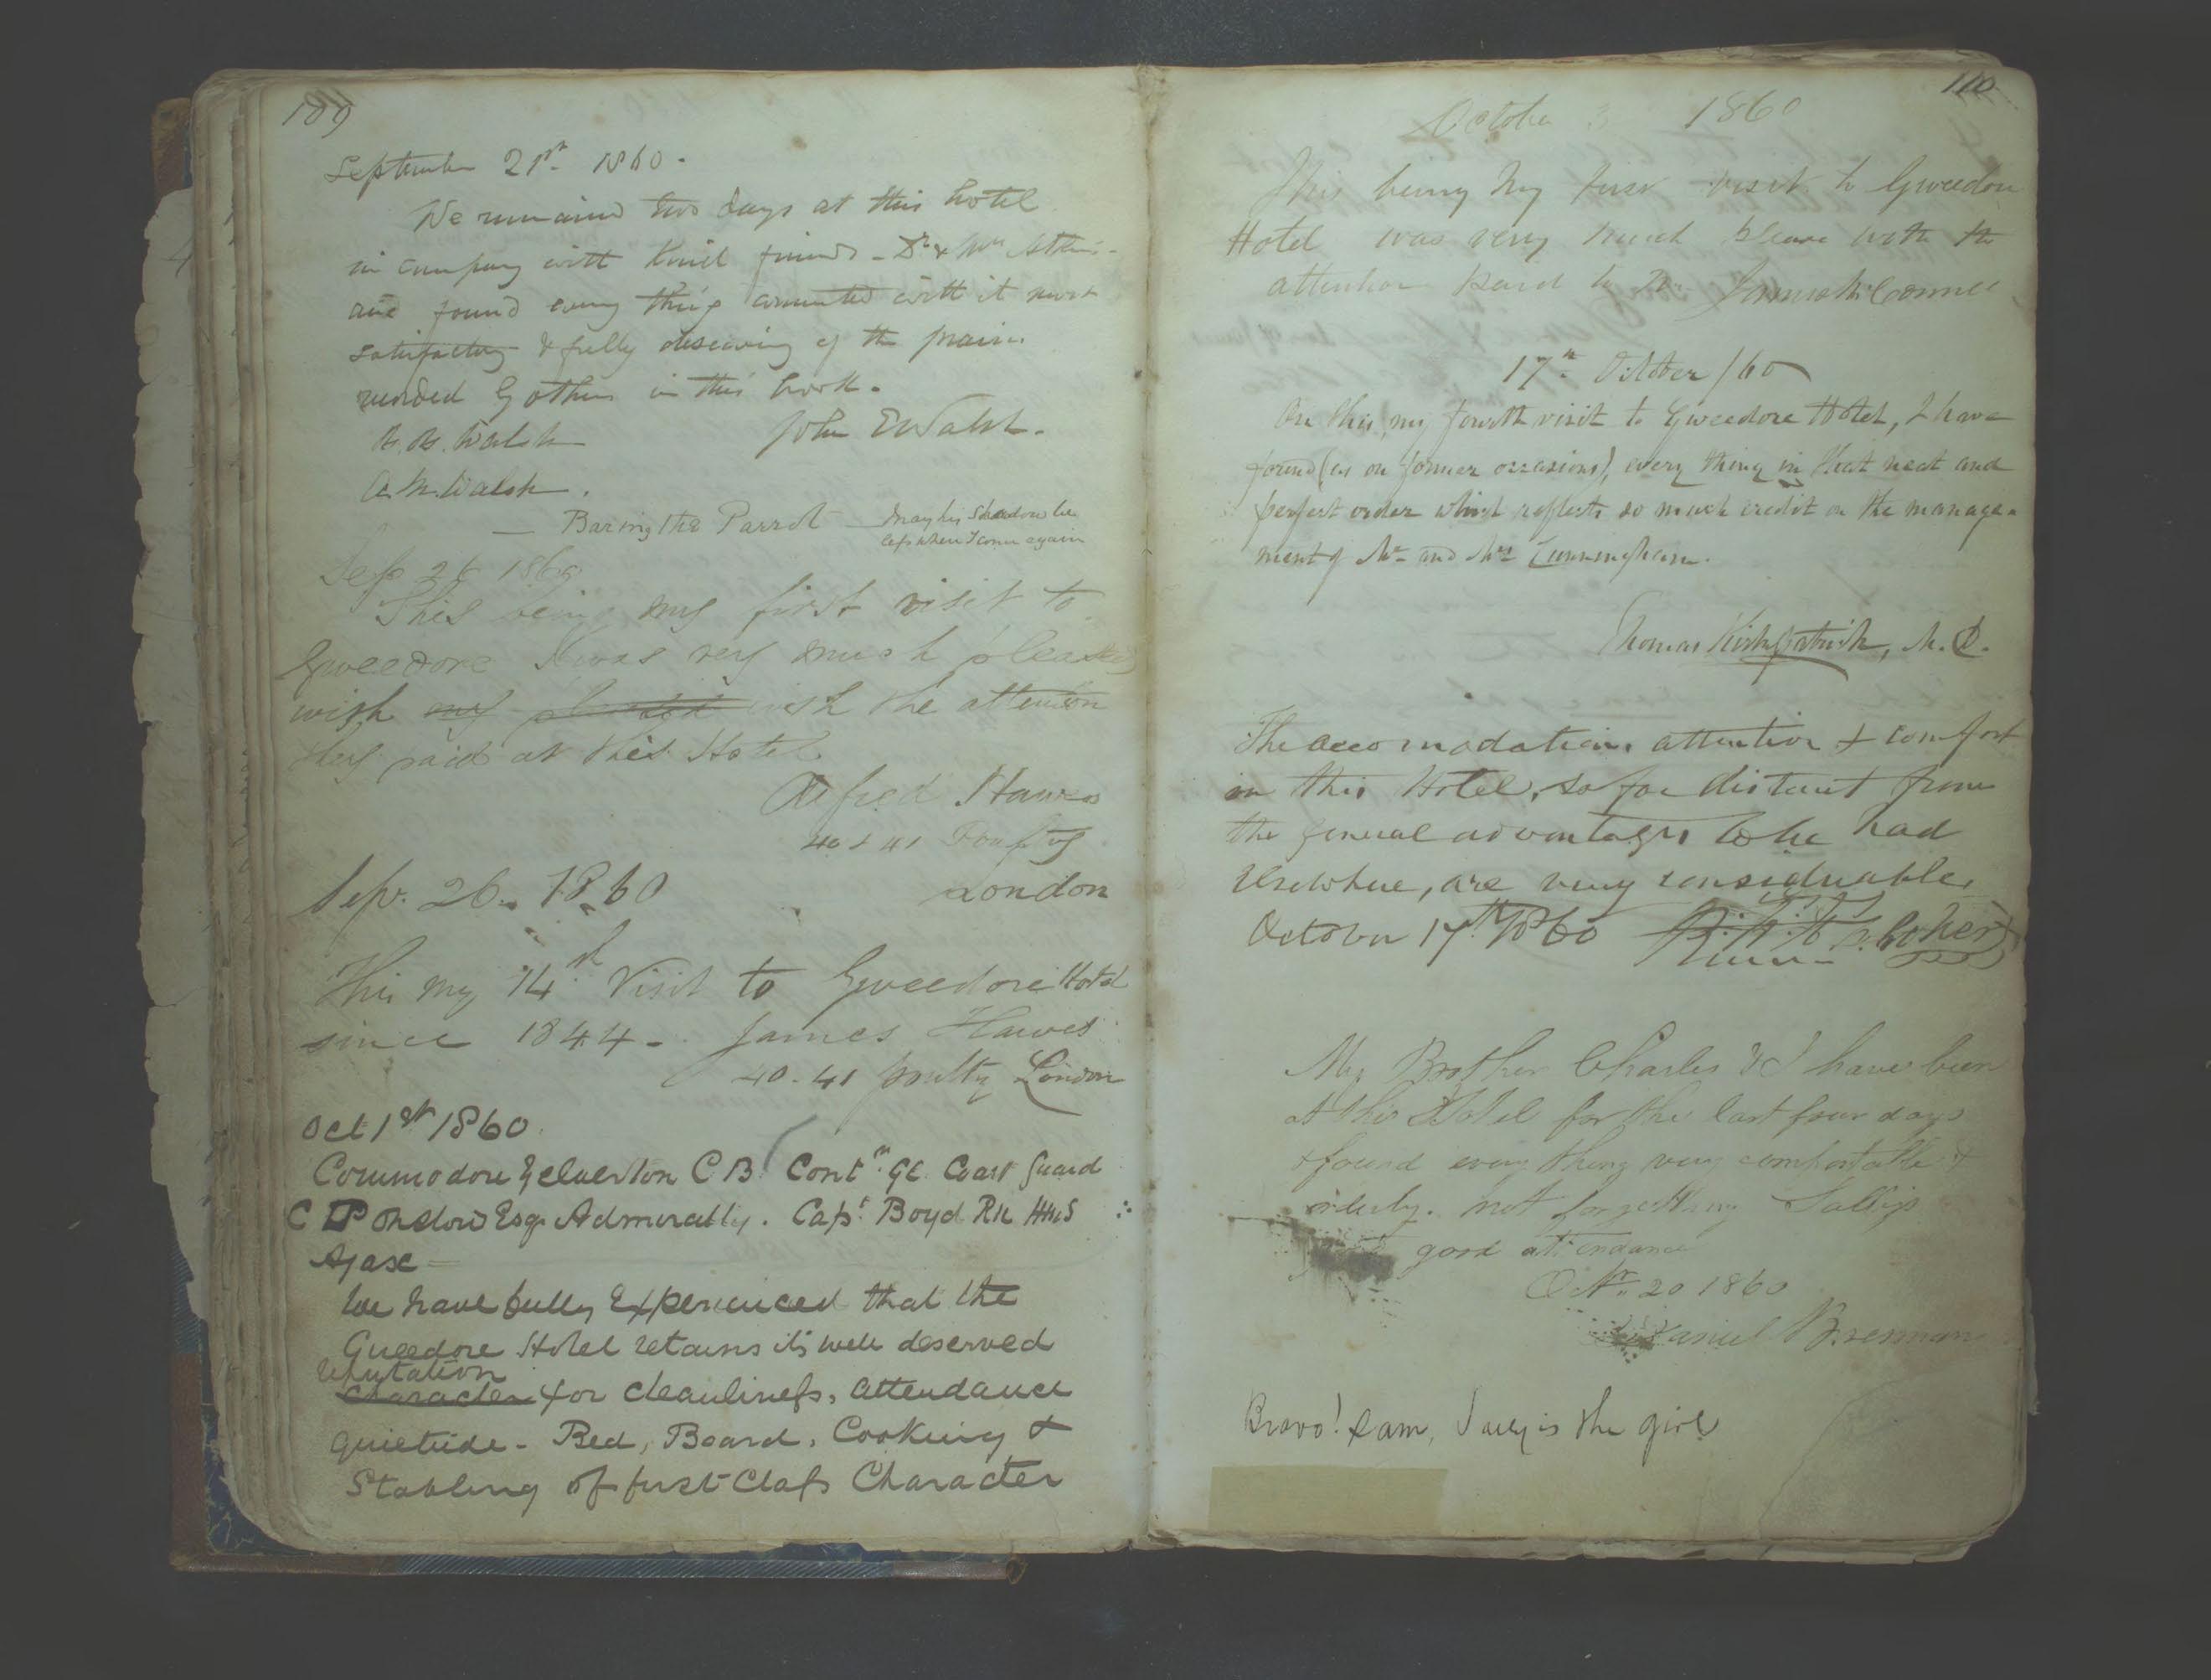 109
September 21st 1860.
We remained two days at this hotel
in company with kind friends - Dr & Mrs
and found every thing connected with it most
satisfactory & fully deserving of the praise
recorded by others in this book.
John E Walsh.
Walsh
Walsh.
— Baring the Parrot — May his shadow be
less when I come again
Sep 26 1860
This being my first visit to
Gweedore I was very much pleased
with my pleased with the attention
they paid at this Hotel
Alfred Hawes
40 & 41
London
Sepr. 26. 1860
This my 14th Visit to Gweedore Hotel
since 1844 - James Hawes
40-41 London
Oct 1st 1860
Commodore Yelverton C B. Contr. Gl. Coast Guard
C P Onslow Esqr Admiralty. Capt Boyd RN HMS
Ajax
We have fully Experienced that the
Gweedore Hotel retains its well deserved
reputation
character for cleanliness, attendance
quietude - Bed, Board, Cooking &
Stabling of first Class Character
110
October 3 1860
This being my first visit to Gweedore
Hotel was very much please with the
attention paid to me
17th October /60
On this, my fourth visit to Gweedore Hotel, I have
found (as on former occasions), every thing in that neat and
perfect order which reflects so much credit on the manage-
ment of Mr and Mrs Cunningham.
Thomas Kirkpatrick, M.D.
The accomodation, attention & comfort
in this Hotel, so far distant from
the general advantages to be had
elsewhere, are very considerable.
October 17th 1860
My Brother Charles & I have been
at this Hotel for the last four days
& found every thing very comfortable &
orderly. not forgetting Sally's
good attendance
Octr. 20 1860
Daniel Brennan
Bravo! Sam, Sally is the girl